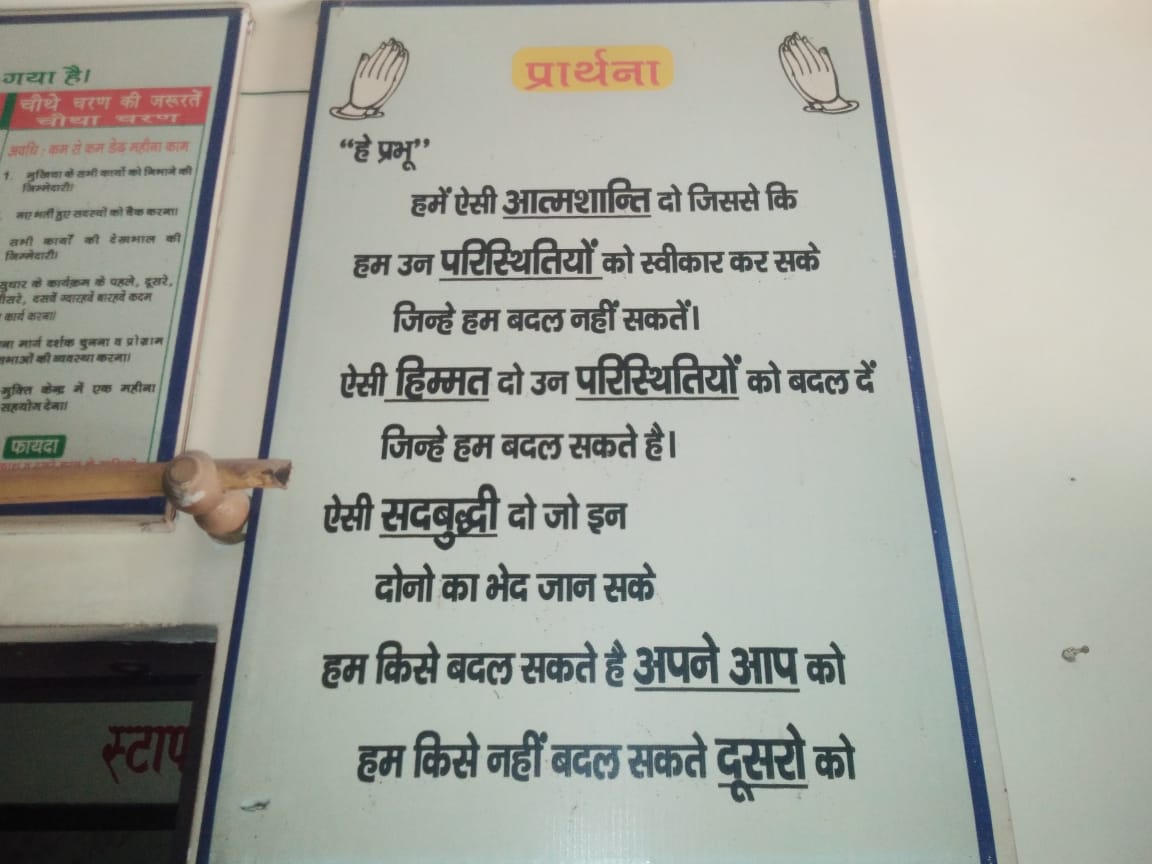 गया है।
चौथे चरण की जरूरतें
चौथा चरण
अवधि : कम से कम डेढ़ महीना काम
1. मुखिया के सभी कार्यो को निभाने की
जिम्मेदारी।
नए भर्ती हुए सदस्यों को चैक करना।
सभी कार्यों की देखभाल की
जिम्मेदारी।
सुधार के कार्यक्रम के पहले, दूसरे,
तीसरे, दसवें ग्यारहवें बारहवें कदम
कार्य करना।
ना मार्ग दर्शक चुनना व प्रोग्राम
सभाओं की व्यवस्था करना।
मुक्ति केन्द्र में एक महीना
सहयोग देना।
फायदा
प्रार्थना
“हे प्रभू”
हमें ऐसी आत्मशान्ति दो जिससे कि
हम उन परिस्थितियों को स्वीकार कर सके
जिन्हे हम बदल नहीं सकतें।
ऐसी हिम्मत दो उन परिस्थितियों को बदल दें
जिन्हे हम बदल सकते है।
ऐसी सदबुद्धी दो जो इन
दोनो का भेद जान सके
हम किसे बदल सकते है अपने आप को
हम किसे नहीं बदल सकते दूसरो को
स्टाफ